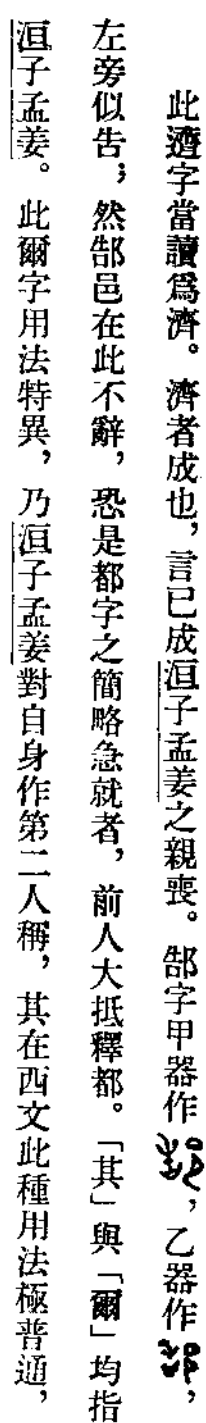 此𨘌字當讀爲濟。濟者成也，言已成洹子孟姜之親喪。郜字甲器作，乙器作，
左旁似告；然郜邑在此不辭，恐是都字之簡略急就者，前人大抵釋都。「其」與「爾」均指
洹子孟姜。此爾字用法特異，乃洹子孟姜對自身作第二人稱，其在西文此種用法極普通，